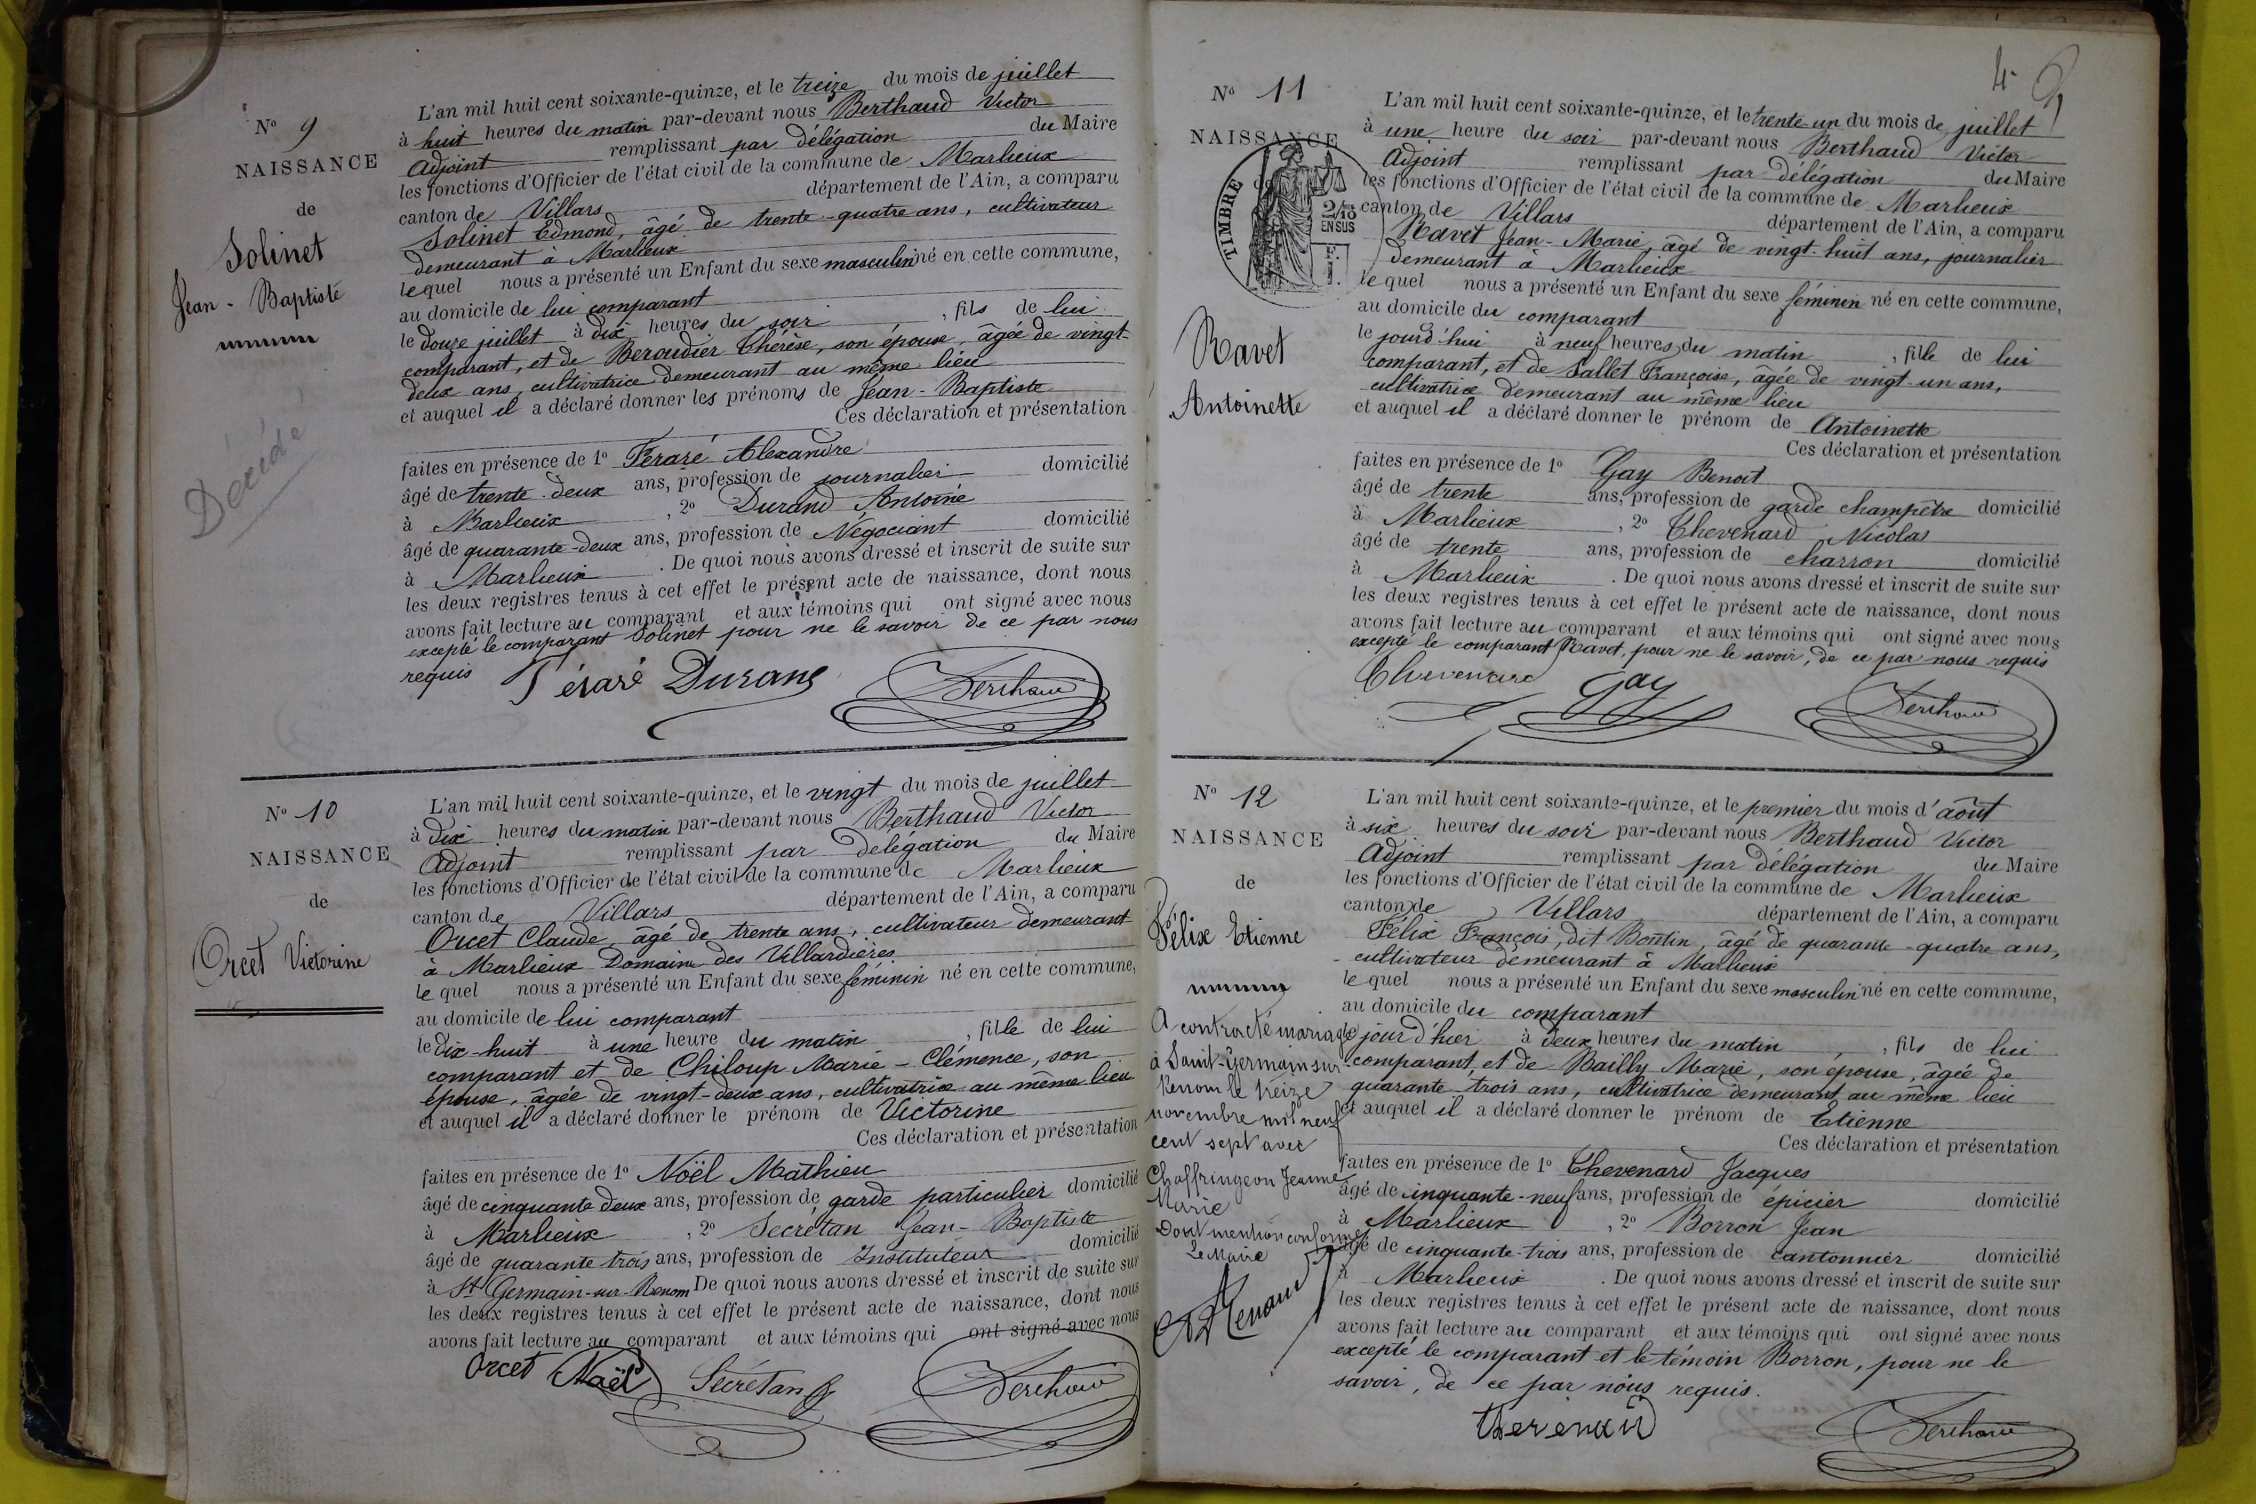 N° 9
NAISSANCE
de
Solinet
Jean-Baptiste
Décédé
L'an mil huit cent soixante-quinze, et le treize du mois de juillet
à huit heures du matin par-devant nous Berthaud Victor
Adjoint remplissant par délégation du Maire
les fonctions d'Officier de l'état civil de la commune de Marlieux
canton de Villars département de l'Ain, a comparu
Solinet Edmond, âgé de trente-quatre ans, cultivateur
demeurant à Marlieux
lequel nous a présenté un Enfant du sexe masculin né en cette commune,
au domicile de lui comparant
le douze juillet à dix heures du soir, fils de lui
comparant, et de Beroudier Thérèse, son épouse, âgée de vingt-
deux ans, cultivatrice demeurant au même lieu
et auquel il a déclaré donner les prénoms de Jean-Baptiste
Ces déclaration et présentation
faites en présence de 1° Féraré Alexandre
âgé de trente-deux ans, profession de journalier domicilié
à Marlieux, 2° Durand Antoine
âgé de quarante-deux ans, profession de Négociant domicilié
à Marlieux. De quoi nous avons dressé et inscrit de suite sur
les deux registres tenus à cet effet le présent acte de naissance, dont nous
avons fait lecture au comparant et aux témoins qui ont signé avec nous
excepté le comparant Solinet pour ne le savoir de ce par nous
requis
Féraré Durand Berthaud
N° 10
NAISSANCE
de
Orcet Victorine
L'an mil huit cent soixante-quinze, et le vingt du mois de juillet
à dix heures du matin par-devant nous Berthaud Victor
Adjoint remplissant par délégation du Maire
les fonctions d'Officier de l'état civil de la commune de Marlieux
canton de Villars département de l'Ain, a comparu
Orcet Claude, âgé de trente ans, cultivateur demeurant
à Marlieux Domaine des Villardières
le quel nous a présenté un Enfant du sexe féminin né en cette commune,
au domicile de lui comparant
le dix-huit à une heure du matin, fille de lui
comparant et de Chiloup Marie-Clémence, son
épouse, âgée de vingt-deux ans, cultivatrice au même lieu
et auquel il a déclaré donner le prénom de Victorine
Ces déclaration et présentation
faites en présence de 1° Noël Mathieu
âgé de cinquante deux ans, profession de garde particulier domicilié
à Marlieux, 2° Secrétan Jean-Baptiste
âgé de quarante trois ans, profession de Instituteur domicilié
à St Germain-sur-Renom De quoi nous avons dressé et inscrit de suite sur
les deux registres tenus à cet effet le présent acte de naissance, dont nous
avons fait lecture au comparant et aux témoins qui ont signé avec nous
Orcet Noël Secrétan Berthaud
4
N° 11
NAISSANCE
de
TIMBRE
2/10
EN SUS
Ravet
Antoinette
L'an mil huit cent soixante-quinze, et le trente-un du mois de juillet
à une heure du soir par-devant nous Berthaud Victor
Adjoint remplissant par délégation du Maire
les fonctions d'Officier de l'état civil de la commune de Marlieux
canton de Villars département de l'Ain, a comparu
Ravet Jean-Marie, âgé de vingt-huit ans, journalier
demeurant à Marlieux
le quel nous a présenté un Enfant du sexe féminin né en cette commune,
au domicile du comparant
le jourd'hui à neuf heures du matin, fille de lui
comparant, et de Sallet Françoise, âgée de vingt-un ans,
cultivatrice demeurant au même lieu
et auquel il a déclaré donner le prénom de Antoinette
Ces déclaration et présentation
faites en présence de 1° Gay Benoit
âgé de trente ans, profession de garde champêtre domicilié
à Marlieux, 2° Chevenard Nicolas
âgé de trente ans, profession de charron domicilié
à Marlieux. De quoi nous avons dressé et inscrit de suite sur
les deux registres tenus à cet effet le présent acte de naissance, dont nous
avons fait lecture au comparant et aux témoins qui ont signé avec nous
excepté le comparant Ravet, pour ne le savoir, de ce par nous requis
Chevenard Gay Berthaud
N° 12
NAISSANCE
de
Félix Etienne
A contracté mariage
à Saint-Germain-sur-
Renom le treize
novembre mil neuf
cent sept avec
Chaffringeon Jeanne
Marie
Dont mention conforme
Le Maire
L'an mil huit cent soixante-quinze, et le premier du mois d'août
à six heures du soir par-devant nous Berthaud Victor
Adjoint remplissant par délégation du Maire
les fonctions d'Officier de l'état civil de la commune de Marlieux
canton de Villars département de l'Ain, a comparu
Félix François, dit Bontin, âgé de quarante-quatre ans,
cultivateur demeurant à Marlieux
le quel nous a présenté un Enfant du sexe masculin né en cette commune,
au domicile du comparant
le jour d'hier à deux heures du matin, fils de lui
comparant, et de Bailly Marie, son épouse, âgée de
quarante-trois ans, cultivatrice demeurant au même lieu
et auquel il a déclaré donner le prénom de Etienne
Ces déclaration et présentation
faites en présence de 1° Chevenard Jacques
âgé de cinquante-neuf ans, profession de épicier domicilié
à Marlieux, 2° Borron Jean
âgé de cinquante-trois ans, profession de cantonnier domicilié
à Marlieux. De quoi nous avons dressé et inscrit de suite sur
les deux registres tenus à cet effet le présent acte de naissance, dont nous
avons fait lecture au comparant et aux témoins qui ont signé avec nous
excepté le comparant et le témoin Borron, pour ne le
savoir, de ce par nous requis.
Chevenard Berthaud